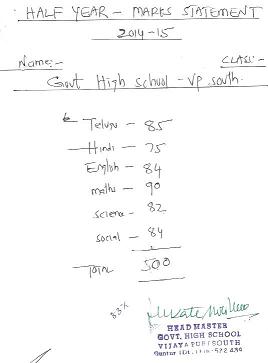 HALF YEAR - MARKS STATEMENT
2014-15
Name:- CLASS:-
Govt High school - VP south.
Telugu - 85
Hindi - 75
English - 84
maths - 90
science - 82
social - 84
Total 500
83%
HEAD MASTER
GOVT. HIGH SCHOOL
VIJAYAPURI SOUTH
Guntur (Dt.) 522 439